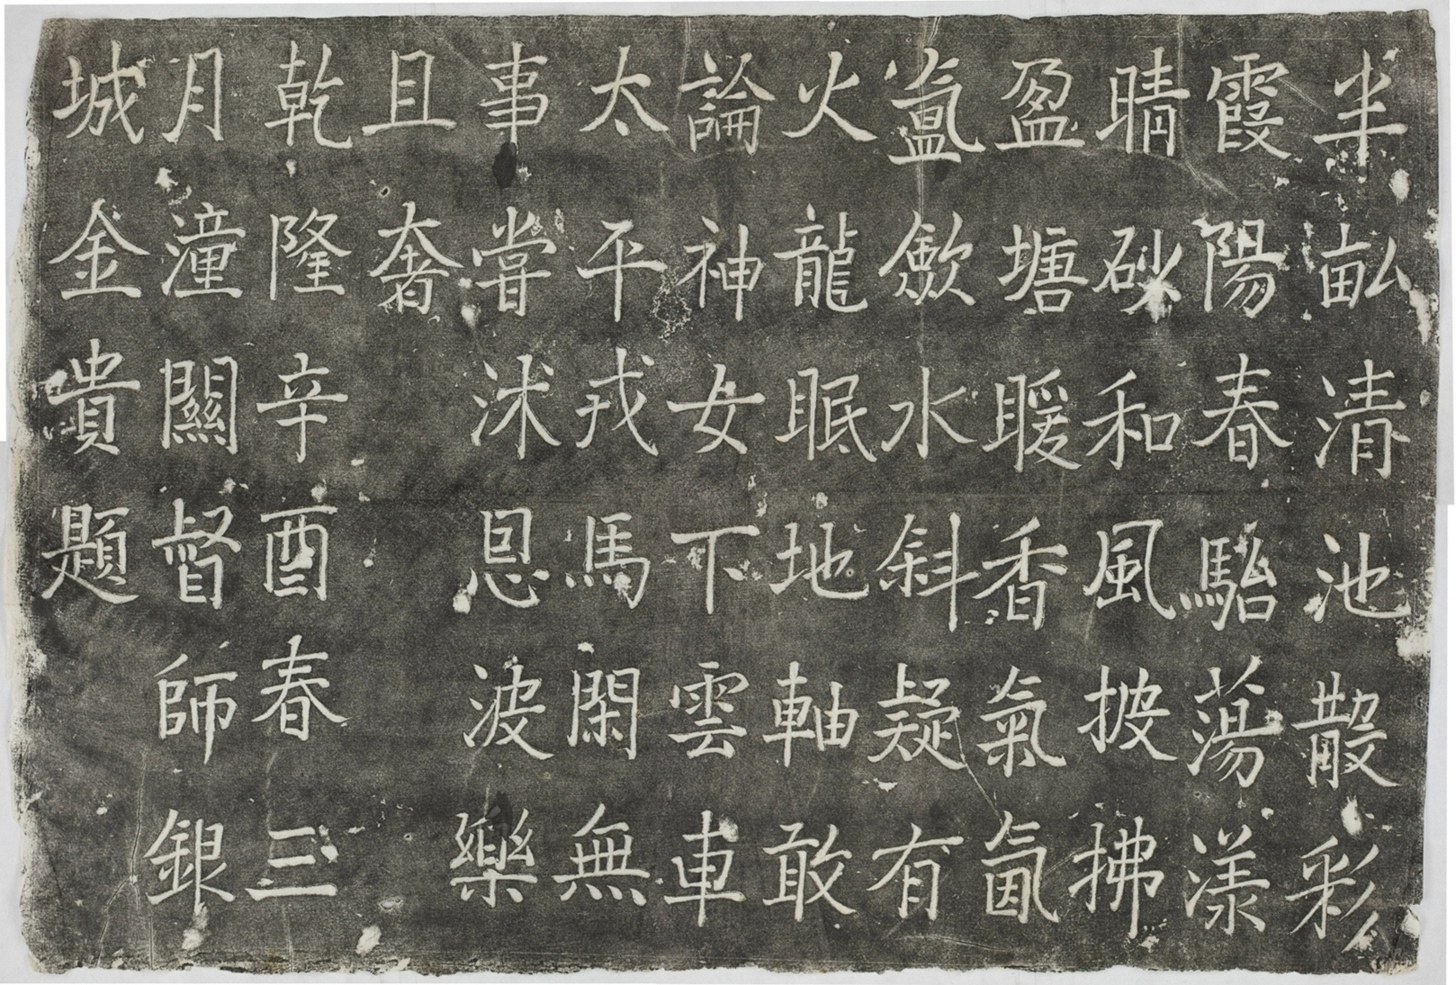 半畝清池散彩
霞陽春駘蕩漾
晴砂和風披拂
盈塘暖香氣氤
氳歛水斜疑有
火龍眠地軸敢
論神女下雲車
太平戎馬閑無
事嘗沭恩波樂
且奢
乾隆辛酉春三
月潼關督師銀
城金貴題